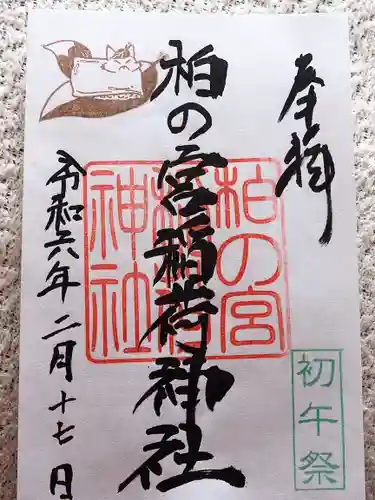 奉拝
柏の宮稲荷神社
令和六年二月十七日
柏の宮
稲荷
神社
初午祭